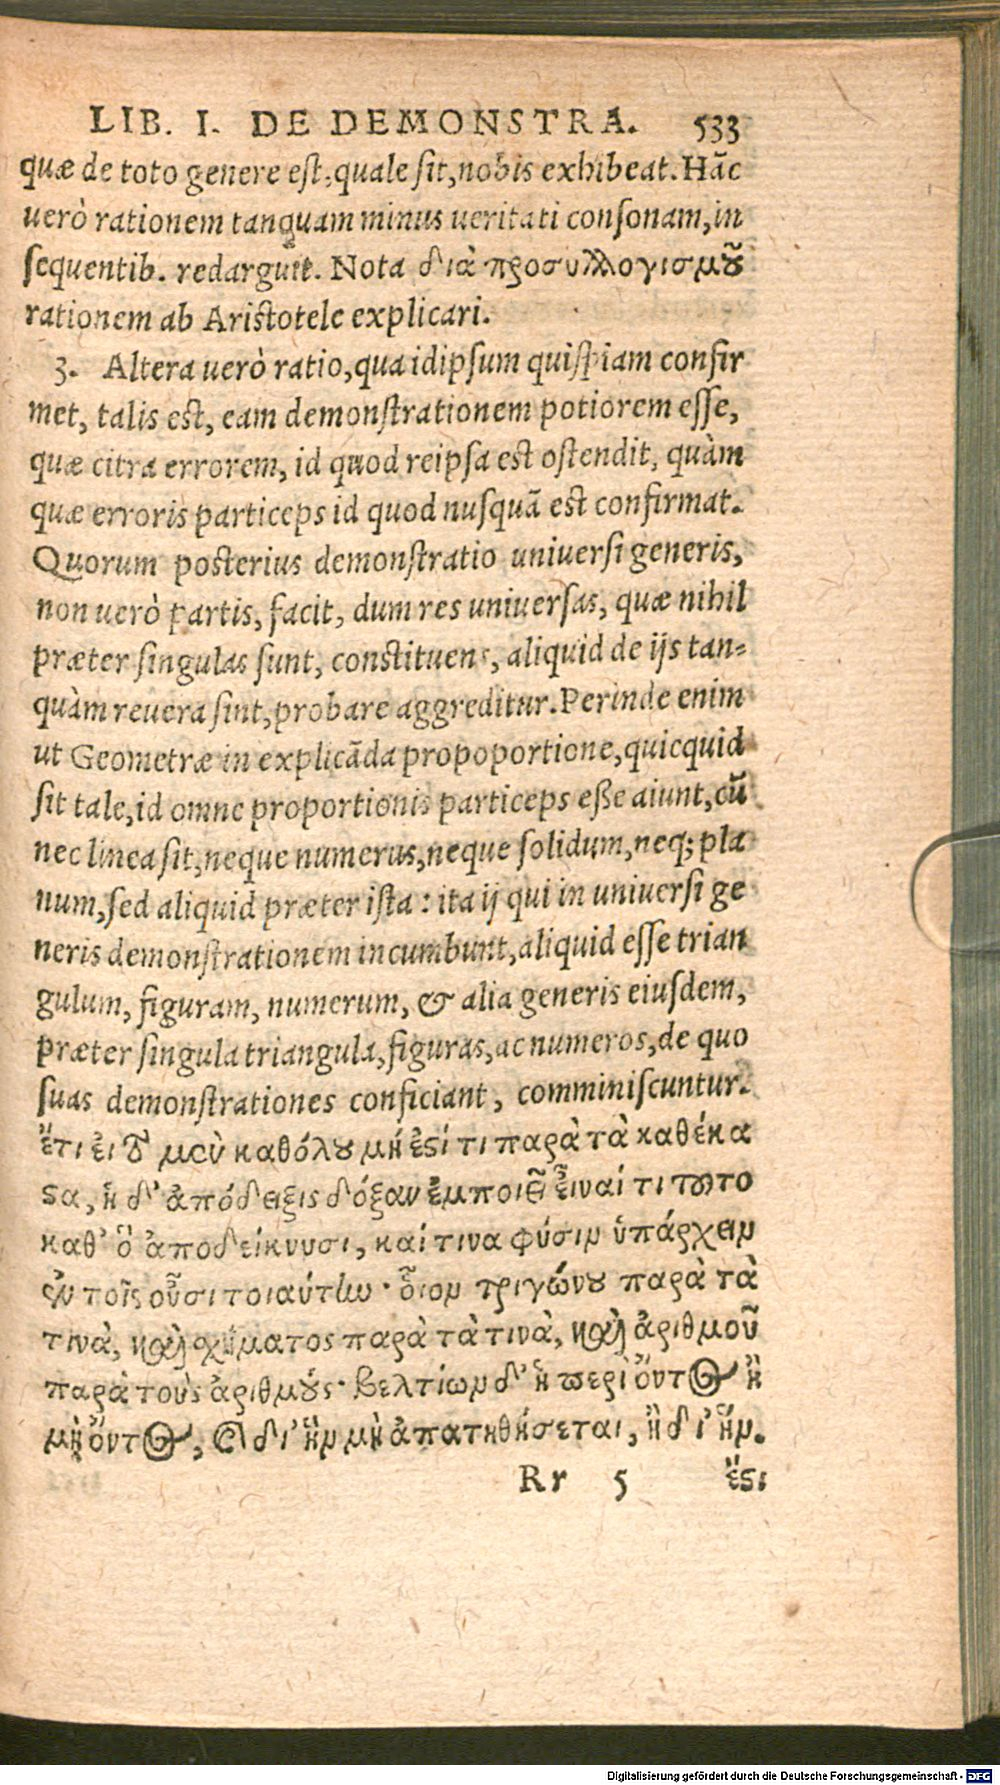 LIB. I. DE DEMONSTRA. 533
quæ de toto genere est, quale sit, nobis exhibeat. Hāc
uerò rationem tanquam minus ueritati consonam, in
sequentib. redarguit. Nota διὰ προσυλλογισμοῦ
rationem ab Aristotele explicari.
3. Altera uerò ratio, qua idipsum quispiam confir
met, talis est, eam demonstrationem potiorem esse,
quæ citra errorem, id quod reipsa est ostendit, quàm
quæ erroris particeps id quod nusquā est confirmat.
Quorum posterius demonstratio uniuersi generis,
non uerò partis, facit, dum res uniuersas, quæ nihil
præter singulas sunt, constituens, aliquid de ijs tan=
quàm reuera sint, probare aggreditur. Perinde enim
ut Geometræ in explicāda propoportione, quicquid
sit tale, id omne proportionis particeps eße aiunt, cū
nec linea sit, neque numerus, neque solidum, neq; pla
num, sed aliquid præter ista : ita ij qui in uniuersi ge
neris demonstrationem incumbunt, aliquid esse trian
gulum, figuram, numerum, & alia generis eiusdem,
præter singula triangula, figuras, ac numeros, de quo
suas demonstrationes conficiant, comminiscuntur.
ἔτι εἰ τὸ μὲν καθόλου μή ἐστί τι παρὰ τὰ καθέκα
στα, ἡ δ' ἀπόδειξις δόξαν ἐμποιεῖ εἶναί τι τοῦτο
καθ' ὃ ἀποδείκνυσι, καί τινα φύσιν ὑπάρχειν
ἐν τοῖς οὖσι τοιαύτην · οἷον τριγώνου παρὰ τὰ
τινὰ, καὶ σχήματος παρὰ τὰ τινὰ, καὶ ἀριθμοῦ
παρὰ τοὺς ἀριθμούς · βελτίων δ' ἡ περὶ ὄντος ἢ
μὴ ὄντος, καὶ δι' ἣν μὴ ἀπατηθήσεται, ἢ δι' ἥν.
Rr 5 ἔστι
Digitalisierung gefördert durch die Deutsche Forschungsgemeinschaft - DFG